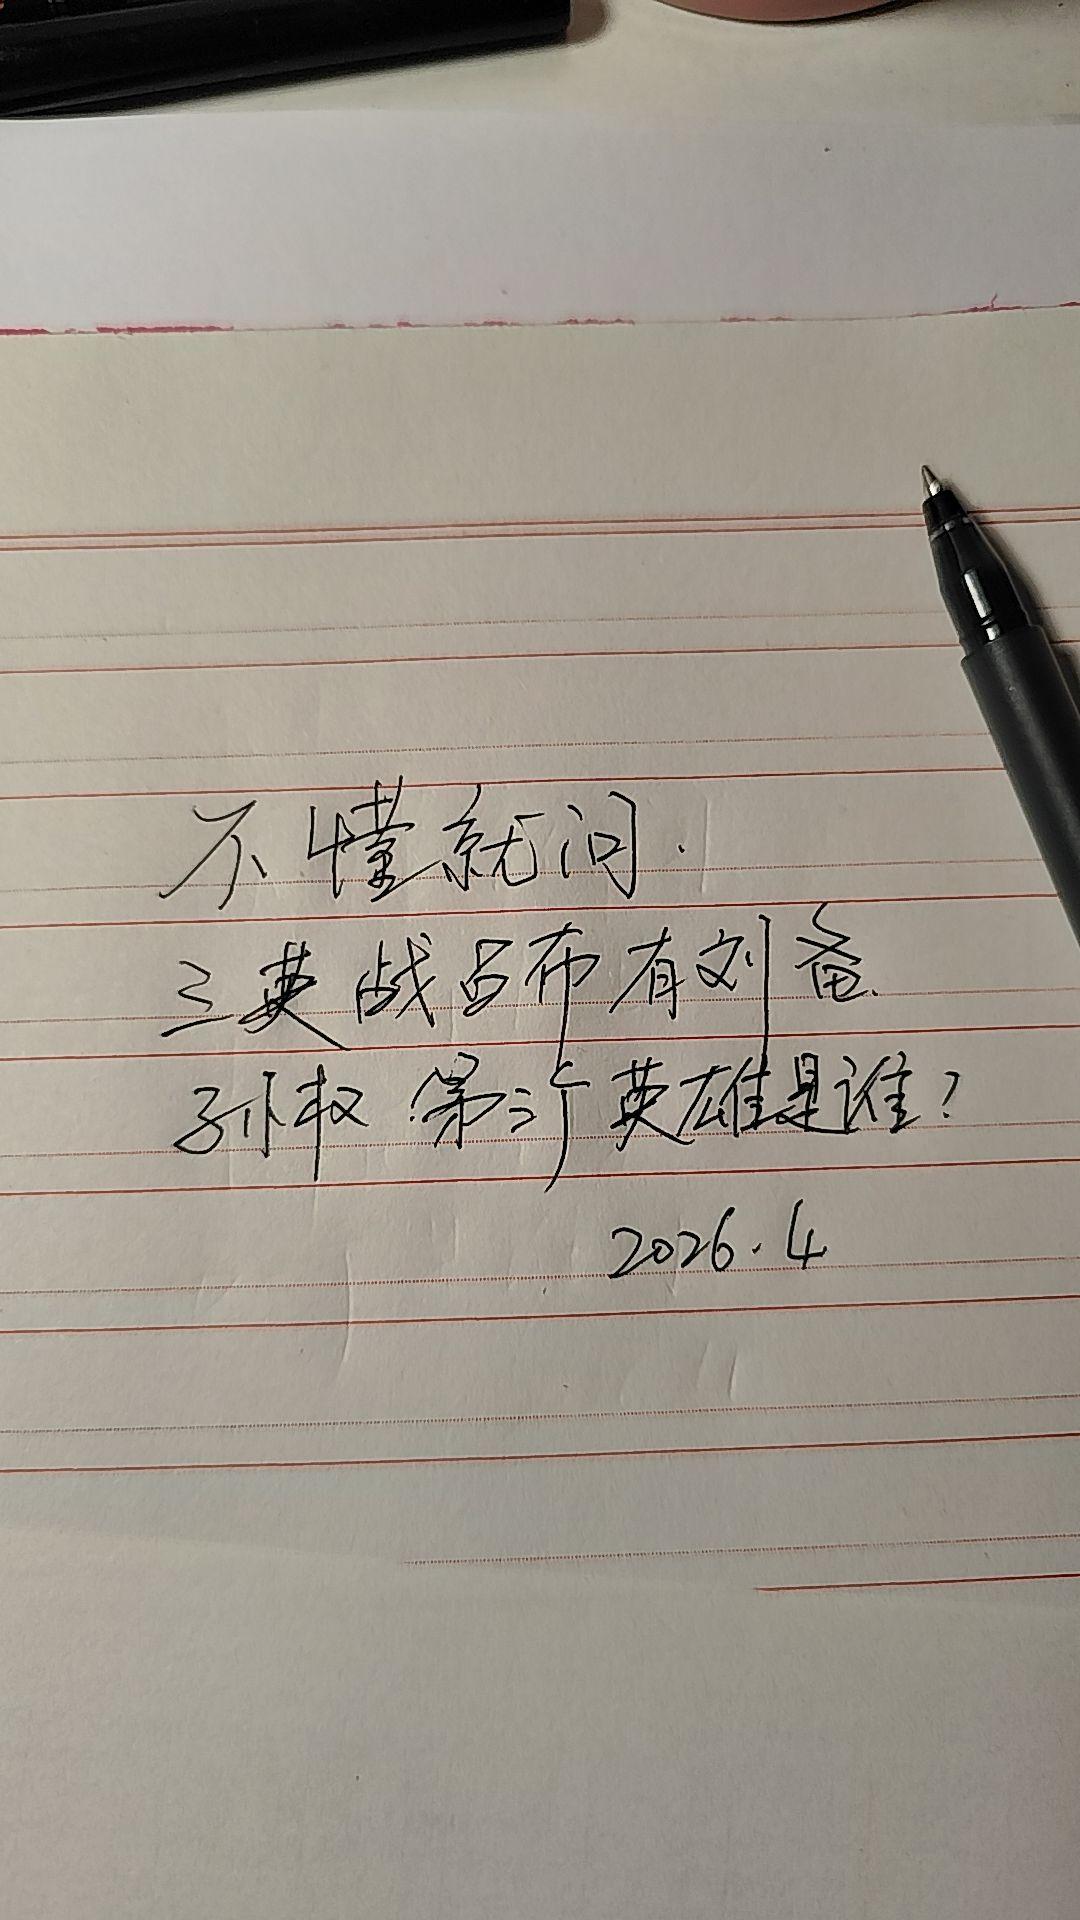 不懂就问.
三英战吕布有刘备
孙权第三个英雄是谁?
2026.4